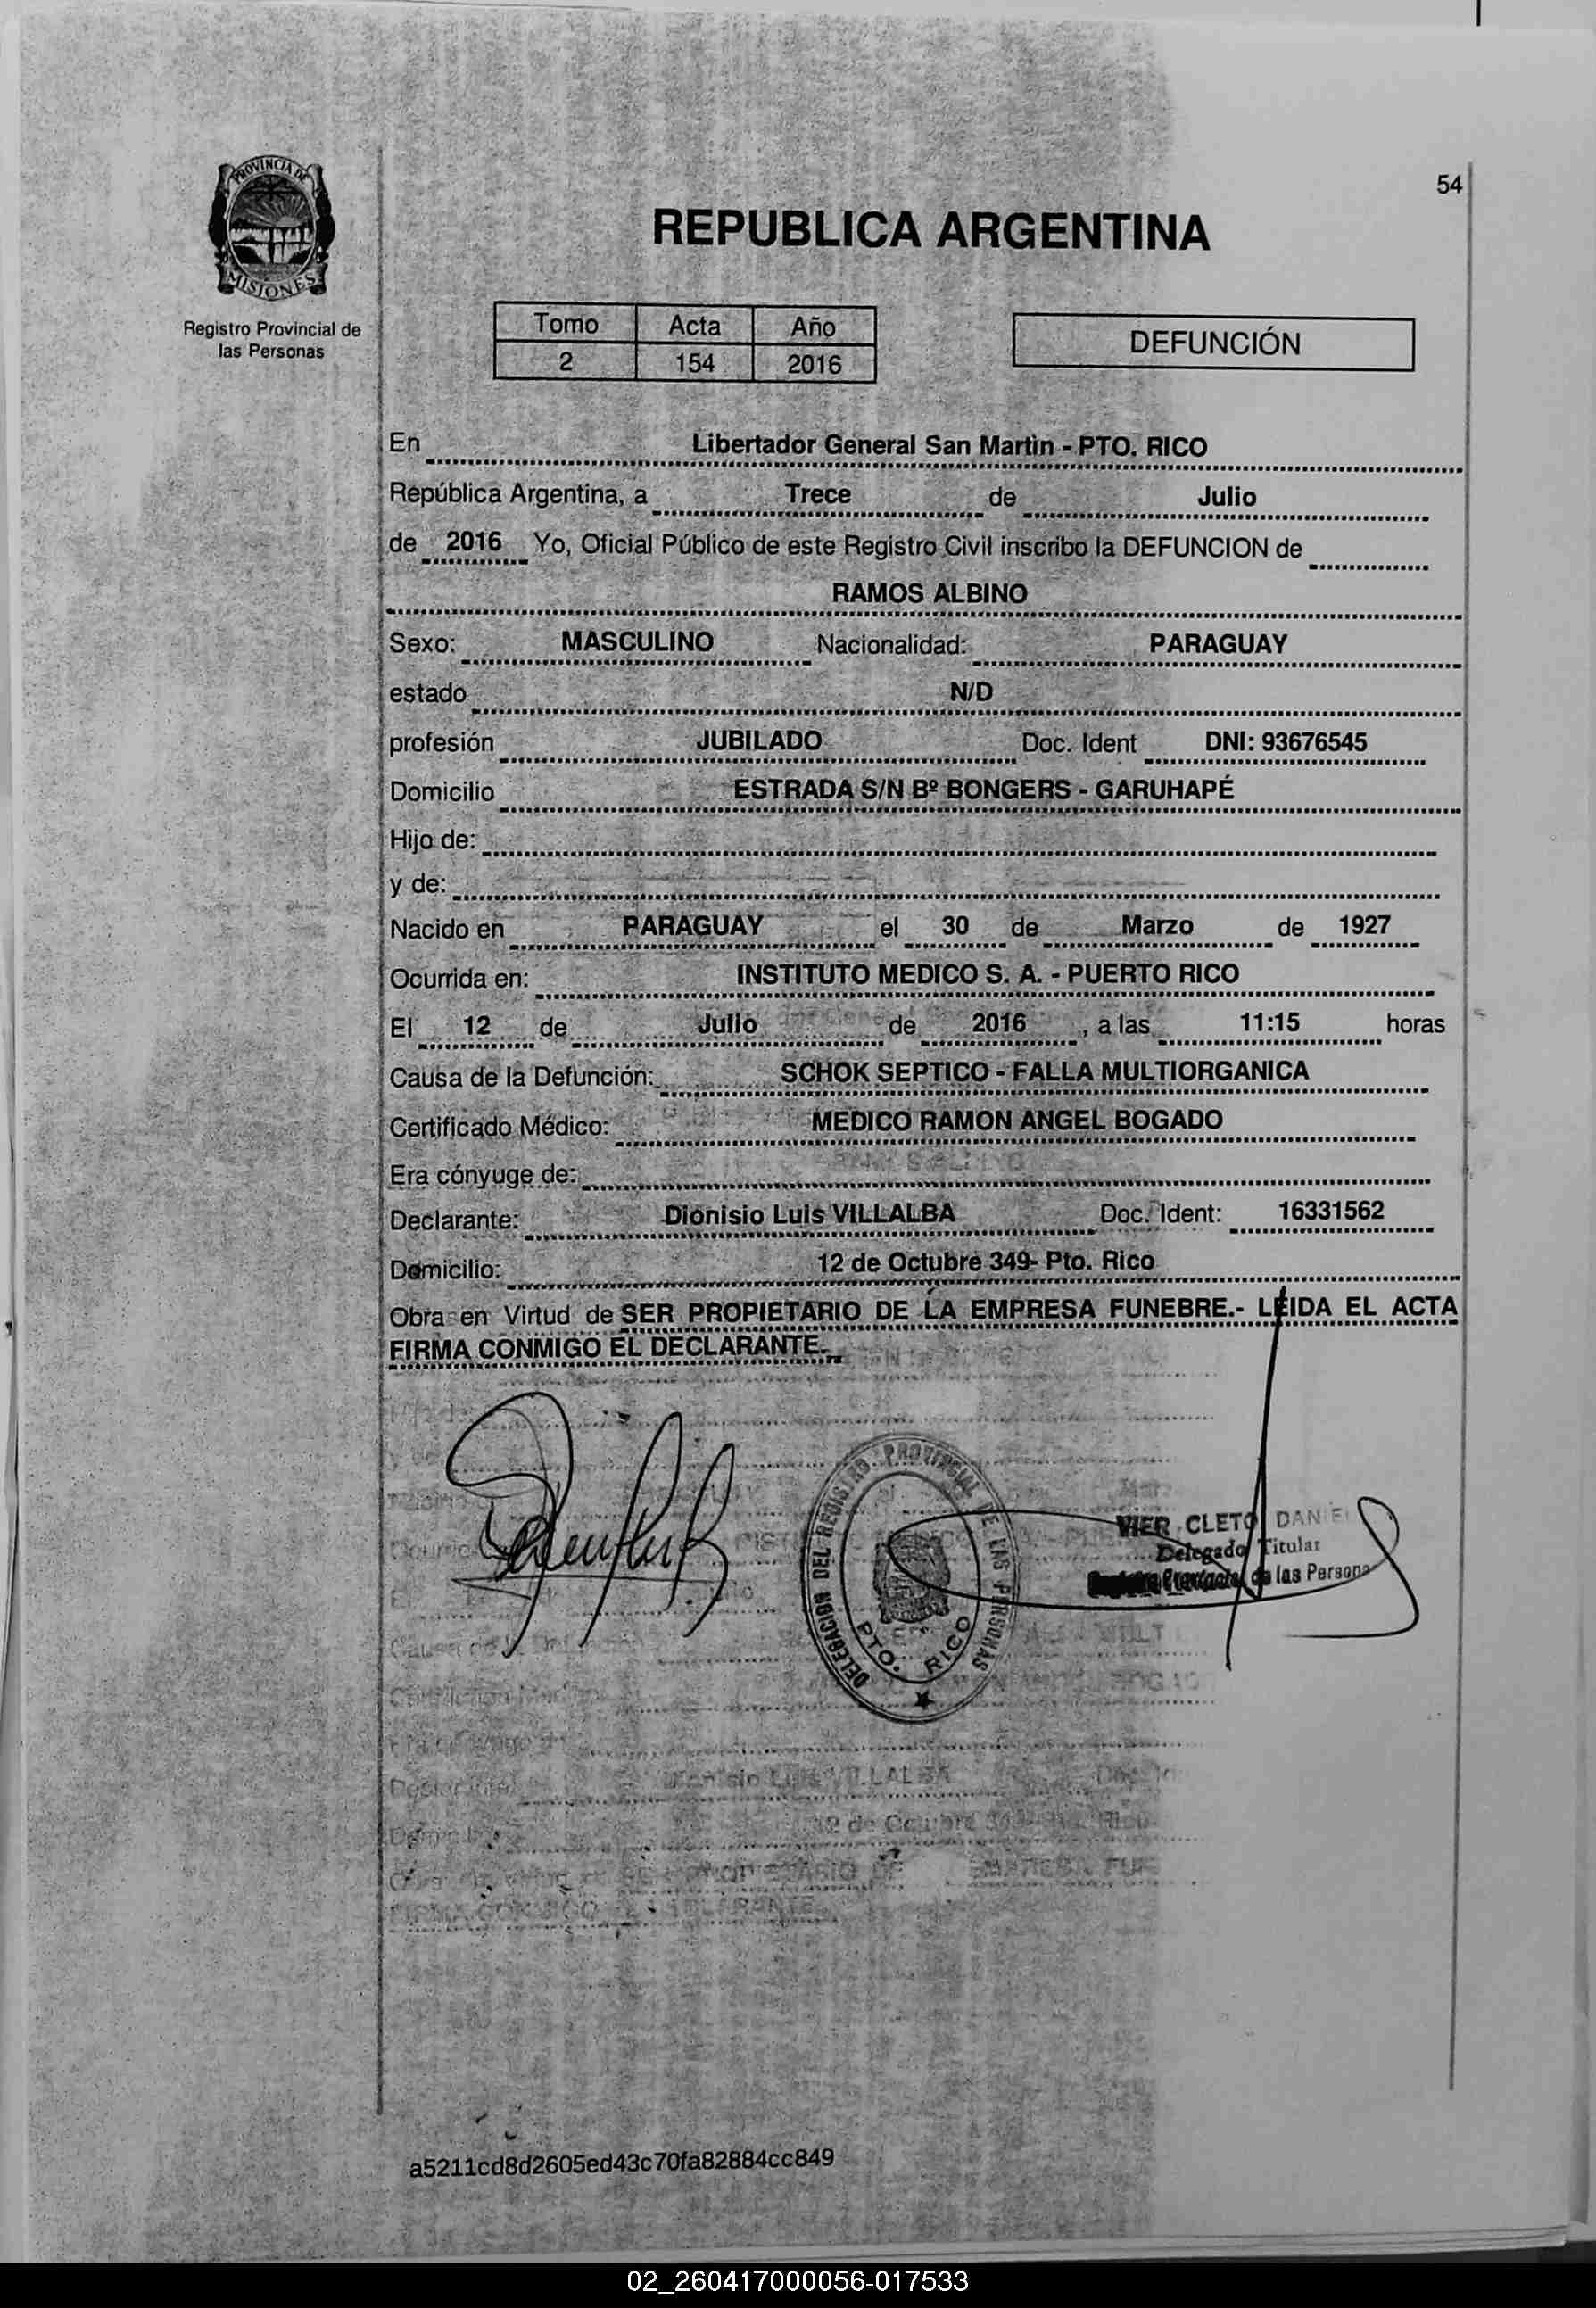 54
PROVINCIA DE
MISIONES
Registro Provincial de
las Personas
REPUBLICA ARGENTINA
Tomo Acta Año
2 154 2016
DEFUNCIÓN
En Libertador General San Martin - PTO. RICO
República Argentina, a Trece de Julio
de 2016 Yo, Oficial Público de este Registro Civil inscribo la DEFUNCION de
RAMOS ALBINO
Sexo: MASCULINO Nacionalidad: PARAGUAY
estado N/D
profesión JUBILADO Doc. Ident DNI: 93676545
Domicilio ESTRADA S/N Bº BONGERS - GARUHAPÉ
Hijo de:
y de:
Nacido en PARAGUAY el 30 de Marzo de 1927
Ocurrida en: INSTITUTO MEDICO S. A. - PUERTO RICO
El 12 de Julio de 2016 , a las 11:15 horas
Causa de la Defunción: SCHOK SEPTICO - FALLA MULTIORGANICA
Certificado Médico: MEDICO RAMON ANGEL BOGADO
Era cónyuge de:
Declarante: Dionisio Luis VILLALBA Doc. Ident: 16331562
Domicilio: 12 de Octubre 349- Pto. Rico
Obra en Virtud de SER PROPIETARIO DE LA EMPRESA FUNEBRE.- LEIDA EL ACTA
FIRMA CONMIGO EL DECLARANTE.
DELEGACION DEL REGISTRO PROVINCIAL DE LAS PERSONAS
PTO. RICO
VIER CLETO DANIEL
Delegado Titular
de las Persona
a5211cd8d2605ed43c70fa82884cc849
02_260417000056-017533